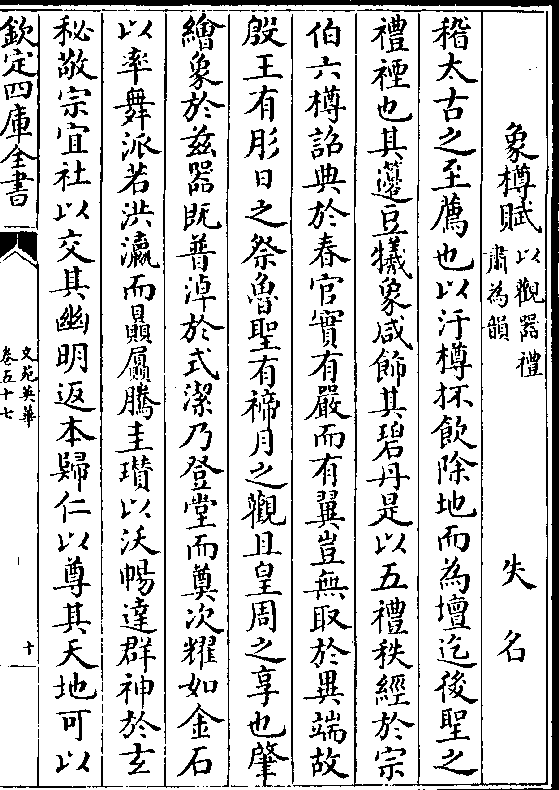 象樽賦以觀器禮肅為韻　失名
稽太古之至薦也以汙樽抔飲除地而為壇迄後聖之
禮禋也其籩豆犧象咸飾其碧丹是以五禮秩經於宗
伯六樽詔典於春官實有嚴而有翼豈無取於異端故
殷王有肜日之祭魯聖有禘月之觀且皇周之享也肇
繪象於茲器既普淖於式潔乃登堂而奠次耀如金石
以率舞派若洪瀛而贔屭騰圭瓚以沃暢達群神於玄
秘敬宗宜社以交其幽明返本歸仁以尊其天地可以
欽定四庫全書
文苑英華
卷五十七
十